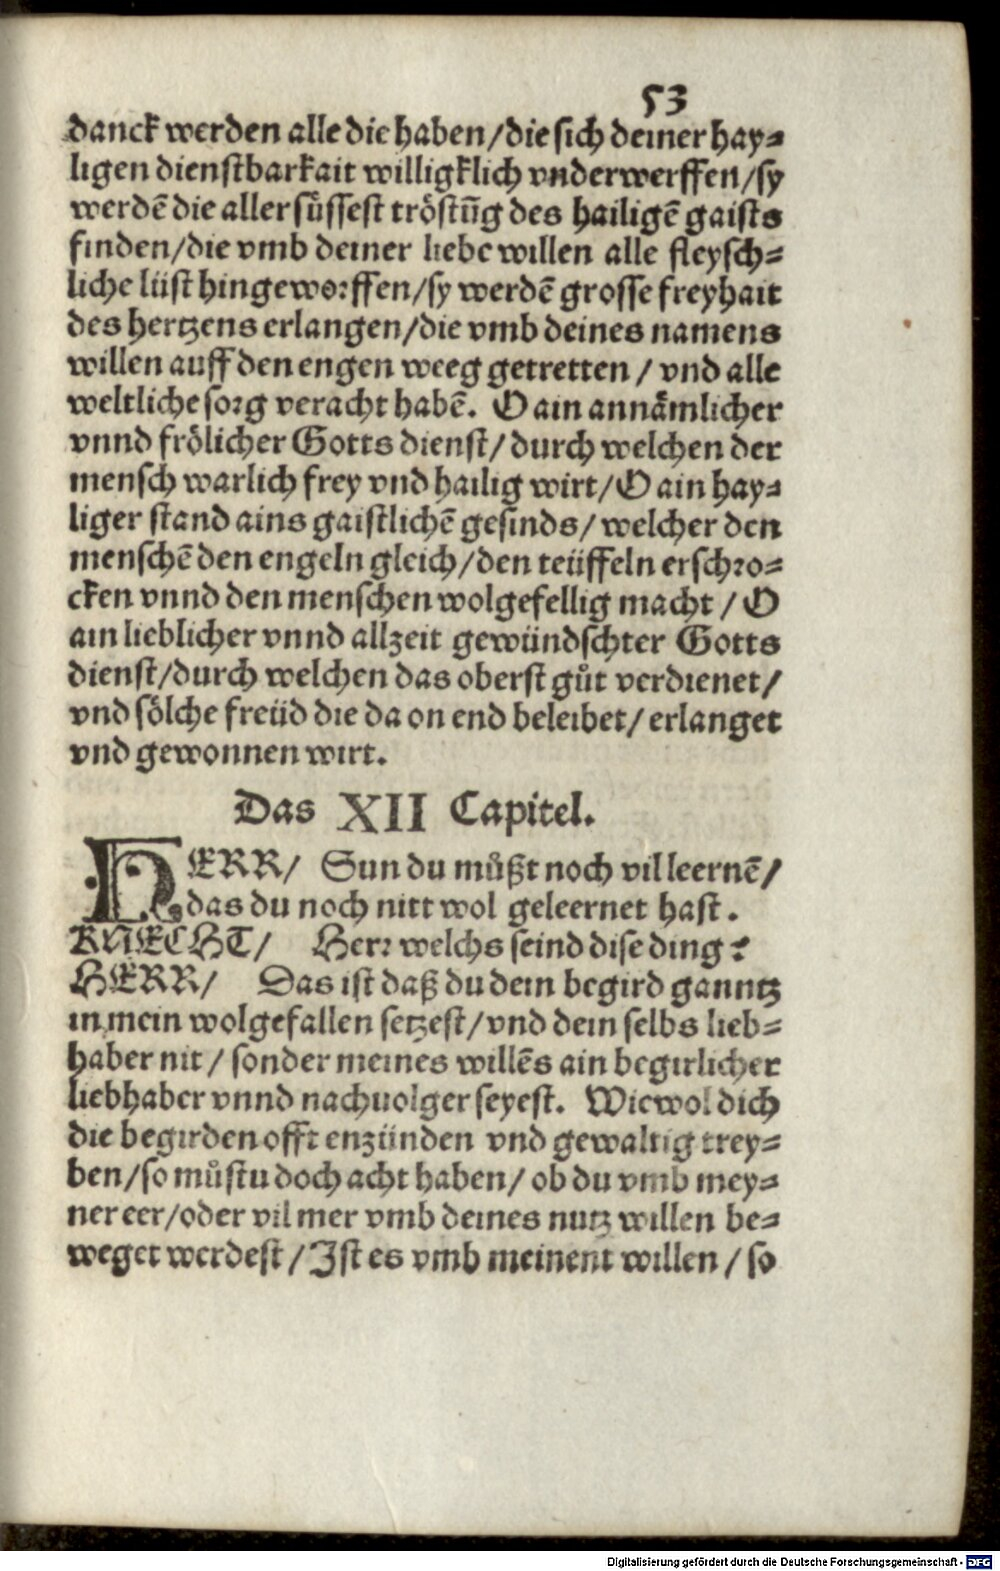 53
danck werden alle die haben/die sich deiner hay⸗
ligen dienstbarkait willigklich vnderwerffen/sy
werdē die aller süssest tröstūg des hailigē gaists
finden/die vmb deiner liebe willen alle fleysch⸗
liche lüst hingeworffen/sy werdē grosse freyhait
des hertzens erlangen/die vmb deines namens
willen auff den engen weeg getretten / vnd alle
weltliche sorg veracht habē. O ain annämlicher
vnnd frölicher Gotts dienst/ durch welchen der
mensch warlich frey vnd hailig wirt/O ain hay⸗
liger stand ains gaistlichē gesinds/ welcher den
menschē den engeln gleich/den teüffeln erschro⸗
cken vnnd den menschen wolgefellig macht / O
ain lieblicher vnnd allzeit gewündschter Gotts
dienst/durch welchen das oberst gůt verdienet/
vnd sölche freüd die da on end beleibet/ erlanget
vnd gewonnen wirt.
Das XII Capitel.
HERR/ Sun du můßt noch vil leernē/
das du noch nitt wol geleernet hast.
KNECHT/ Herr welchs seind dise ding?
HERR/ Das ist daß du dein begird ganntz
in mein wolgefallen setzest/vnd dein selbs lieb⸗
haber nit/ sonder meines willēs ain begirlicher
liebhaber vnnd nachuolger seyest. Wiewol dich
die begirden offt enzünden vnd gewaltig trey⸗
ben/so můstu doch acht haben/ ob du vmb mey⸗
ner eer/oder vil mer vmb deines nutz willen be⸗
weget werdest / Ist es vmb meinent willen / so
Digitalisierung gefördert durch die Deutsche Forschungsgemeinschaft - DFG